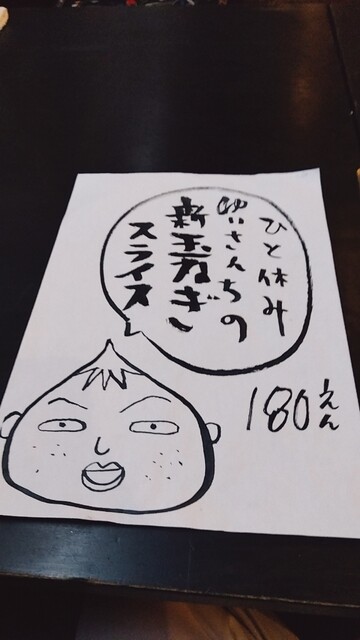 ひと休み
ゆいさんちの
新玉ねぎ
スライス
180えん